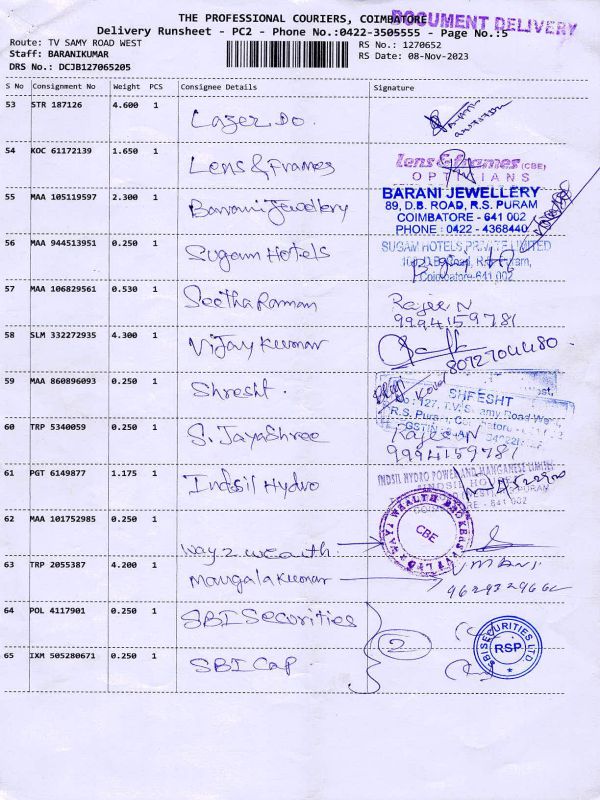 THE PROFESSIONAL COURIERS, COIMBATORE
DOCUMENT DELIVERY
Delivery Runsheet - PC2 - Phone No.:0422-3505555 - Page No.:5
Route: TV SAMY ROAD WEST
RS No.: 1270652
Staff: BARANIKUMAR
RS Date: 08-Nov-2023
DRS No.: DCJB127065205
S No Consignment No Weight PCS Consignee Details Signature
53 STR 187126 4.600 1 Lazer Do.
54 KOC 61172139 1.650 1 Lens & Frames
Lens & frames (CBE)
OPTICIANS
55 MAA 105119597 2.300 1 Barani Jewellery
BARANI JEWELLERY
89, D.B. ROAD, R.S. PURAM
COIMBATORE - 641 002
PHONE : 0422 - 4368440
56 MAA 944513951 0.250 1 Sugam Hotels
SUGAM HOTELS PRIVATE LIMITED
Coimbatore-641 002
57 MAA 106829561 0.530 1 Seetha Raman
Rajee N
9994159781
58 SLM 332272935 4.300 1 Vijay Kumar
8072704480
59 MAA 860896093 0.250 1 Shresht.
SHRESHT
127, T.V. Swamy Road West,
60 TRP 5340059 0.250 1 S. Jayashree
Rajee N
9994159781
61 PGT 6149877 1.175 1 Indsil Hydro
INDSIL HYDRO POWER AND MANGANESE LIMITED
62 MAA 101752985 0.250 1 Way 2 wealth
WAY2 WEALTH BROKERS PVT LTD
CBE
63 TRP 2055387 4.200 1 Mangala Kumar
64 POL 4117901 0.250 1 SBI Securities
2
SBI SECURITIES LTD
RSP
65 IXM 505280671 0.250 1 SBI Cap